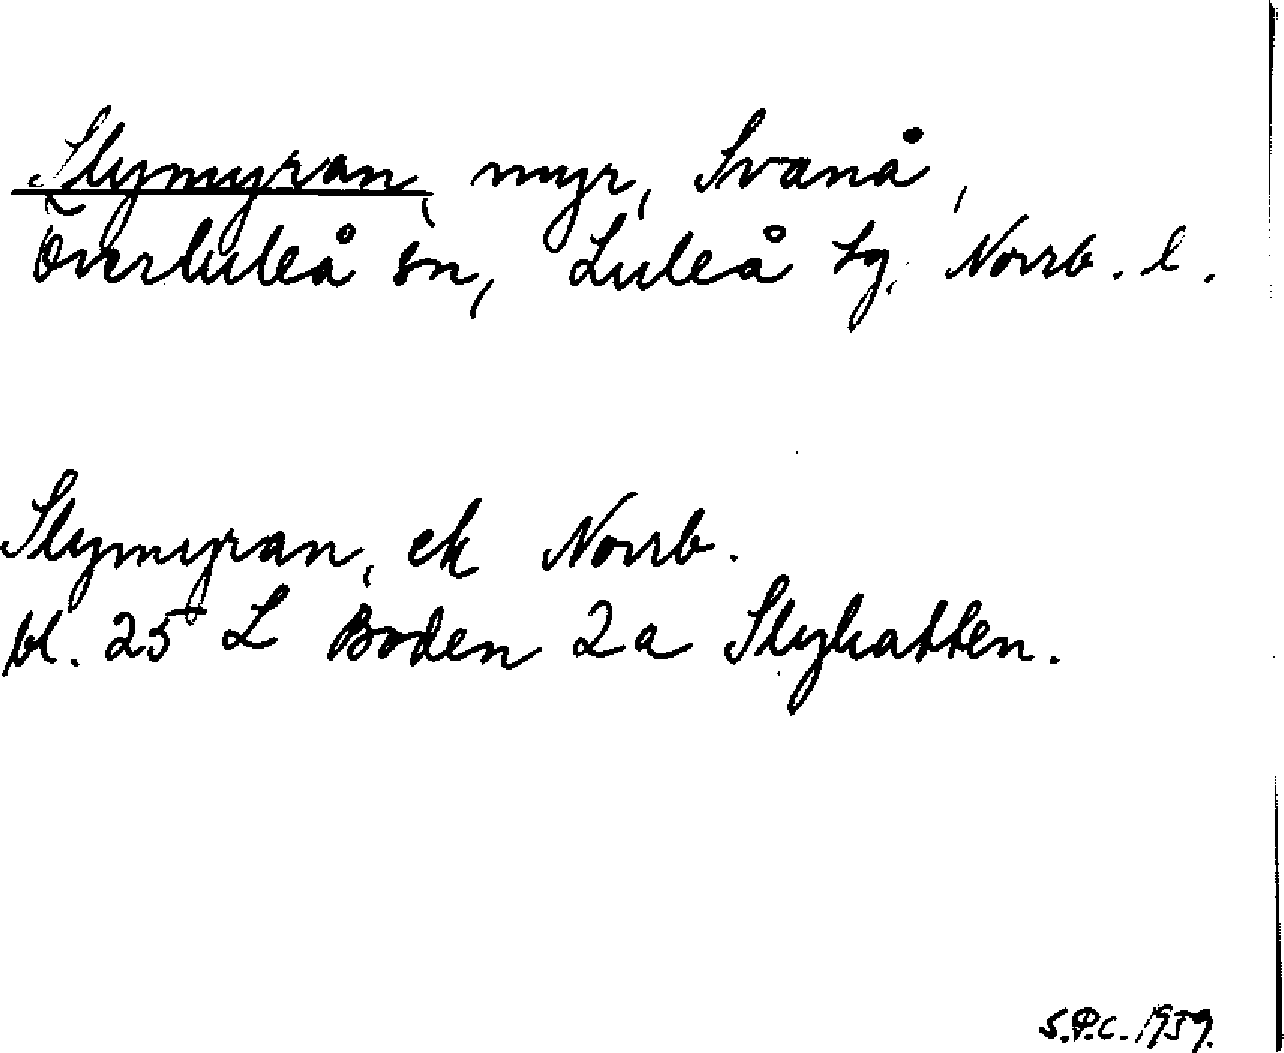 Slymyran, myr, Svanå,
Överluleå sn, Luleå tg, Norrb. l.
Slymyran, ek Norrb.
bl. 25 L Boden 2a Slyhatten.
S.P.C. 1959.